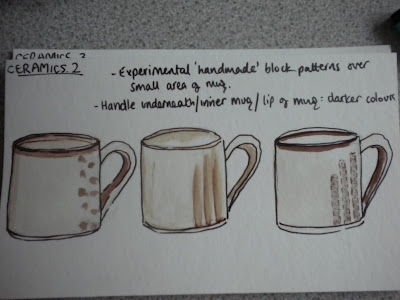 CERAMICS 2
CERAMICS 2
- Experimental 'handmade' block patterns over
small area of mug.
- Handle underneath/inner mug/lip of mug: darker colours